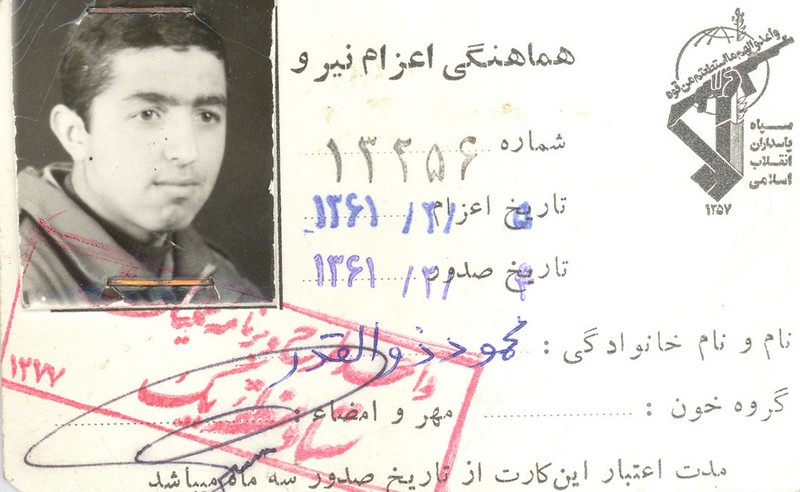 هماهنگی اعزام نیرو
واعدوالهم ما استطعتم من قوة
سپاه
پاسداران
انقلاب
اسلامی
۱۳۵۷
شماره ۱۳۲۵۶
تاریخ اعزام ۵ /۳/ ۱۳۶۱
تاریخ صدور ۴ /۳/ ۱۳۶۱
نام و نام خانوادگی : محمود ذوالقدر
گروه خون :
مهر و امضاء :
مدت اعتبار این کارت از تاریخ صدور سه ماه میباشد